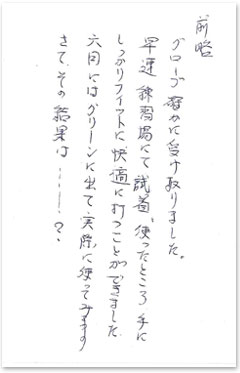 前略
グローブ確かに受け取りました。
早速練習場にて試着、使ったところ手に
しっかりフィットに快適に打つことができました
六日にはグリーンに出て実際に使ってみます
さて、その結果は………?